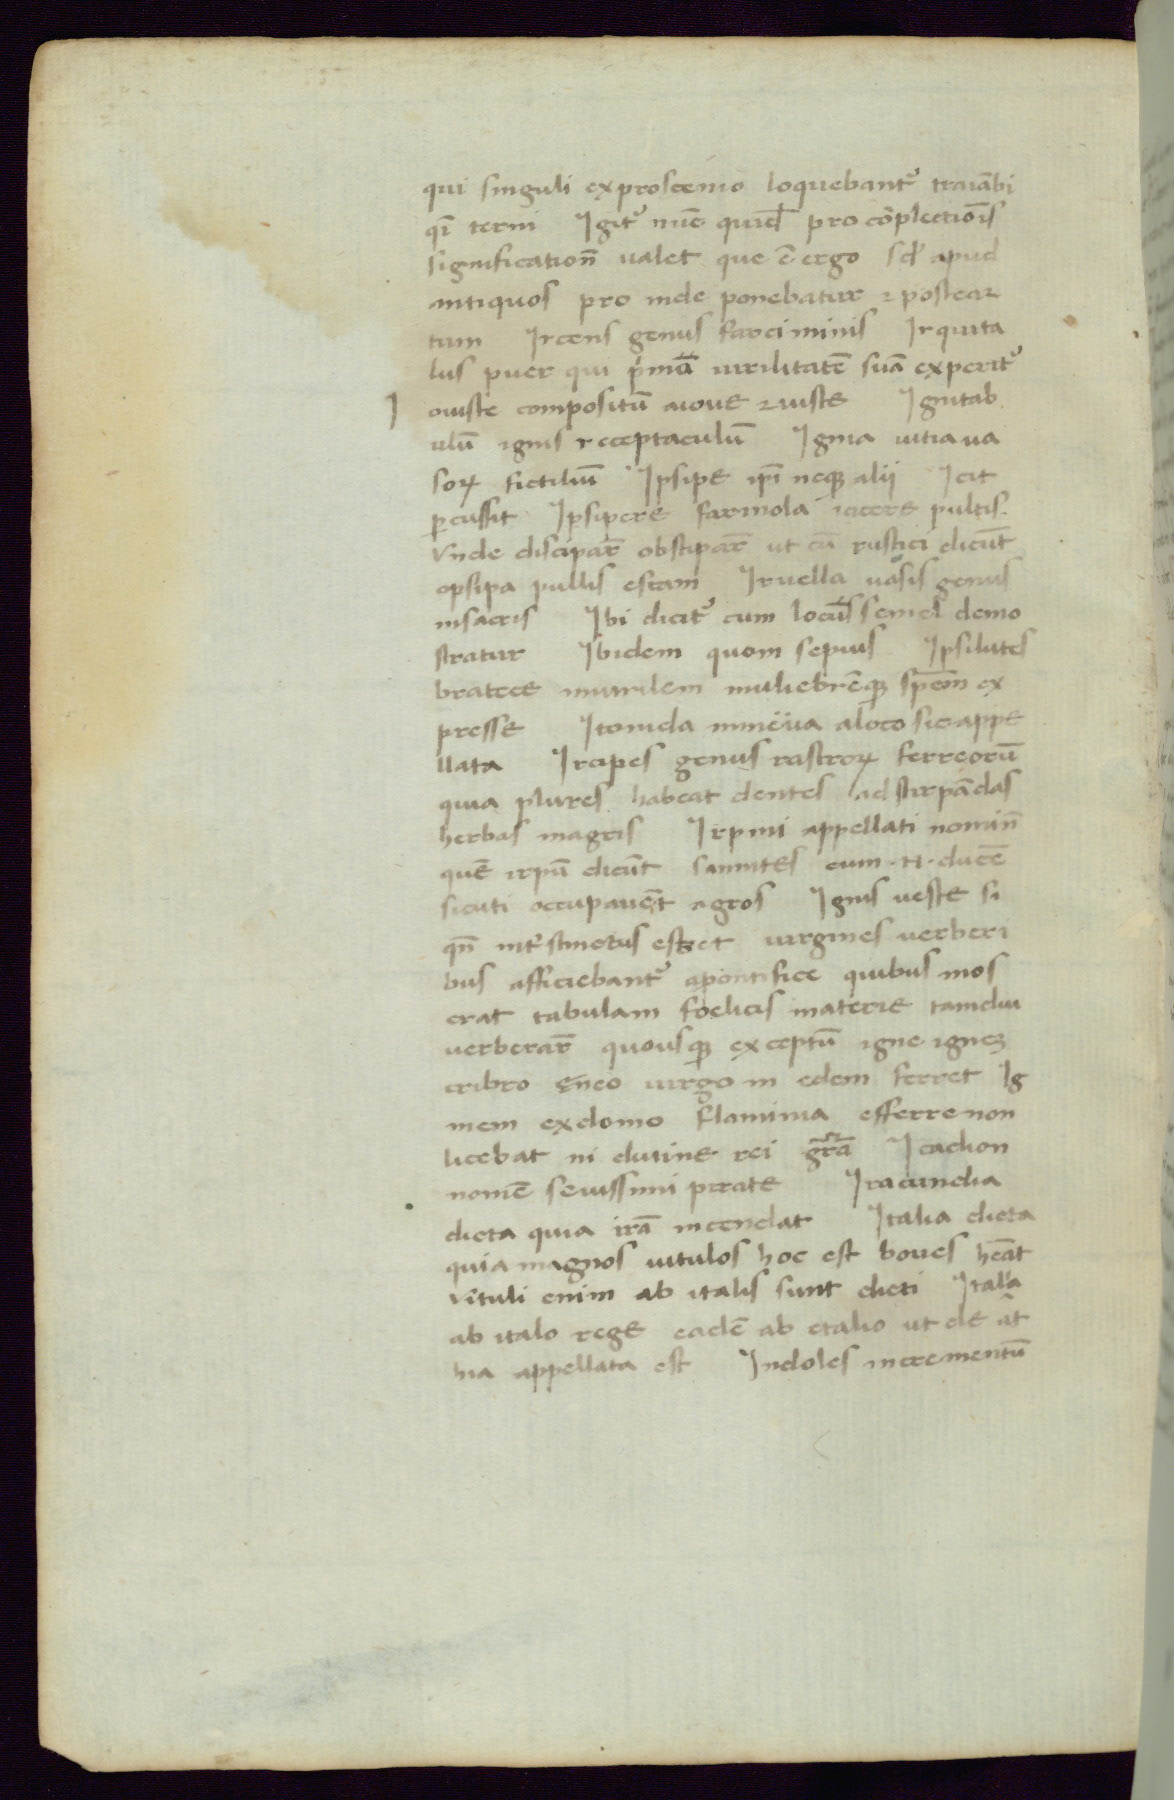 qui singuli exproscenio loquebantᷣ traiābi
qͥ terni Igitᷣ nūc quid̄ pro cōplectiōīs
significationē̄ valet que ē ergo sed̄ apud
antiquos pro inde ponebatur ⁊ postear
tum Irceus genus farciminis Irquita
lus puer qui pͥmū virilitatē suā experitᷣ
I ouiste compositū aioue ⁊ uiste Ignitab
ulū ignis receptaculū Ignia uitia ua
soꝝ fictiliū Ipsipe ip̄i neqꝫ alij Icit
ꝑcussit Ipsipere farinola iacere pultis.
Vnde discipar̄ obstipar̄ ut cū rustici dicūt
opsipa pullis escam Iruella uasis genus
insacris Ibi dicitᷣ cum locus semel demo
stratur Ibidem quom sepius Ipsilutes
bratece inuirilem muliebrēqꝫ sp̄em ex
presse Itonida minĕua aloco sic appe
llata Ircipes genus rastroꝝ ferreorū
quia plures habeat dentes ad stirpādas
herbas inagris Irpini appellati nomin̄
quē irpū dicūt samnites eum .n. ducē
sicuti occupauēt agros Ignis ueste si
qn̄ int̄stinctus esset uirgines uerberi
bus afficiebantᷣ apontifice quibus mos
erat tabulam foelicis materie tamdiu
uerberar̄ quousqꝫ exceptū igne ignez
cribro ęneo uirgo in edem ferret Ig
mem exdomo flaminia efferre non
licebat ni diuine rei gr̄a Icadion
nomē seuissimi pirate Iracundia
dicta quia irā incendat Italia dicta
quia magnos uitulos hoc est boues hēāt
vituli enim ab italis sunt dicti Italia
ab italo rege eadē ab etalio ut de āt
hia appellata est Indoles incrementū